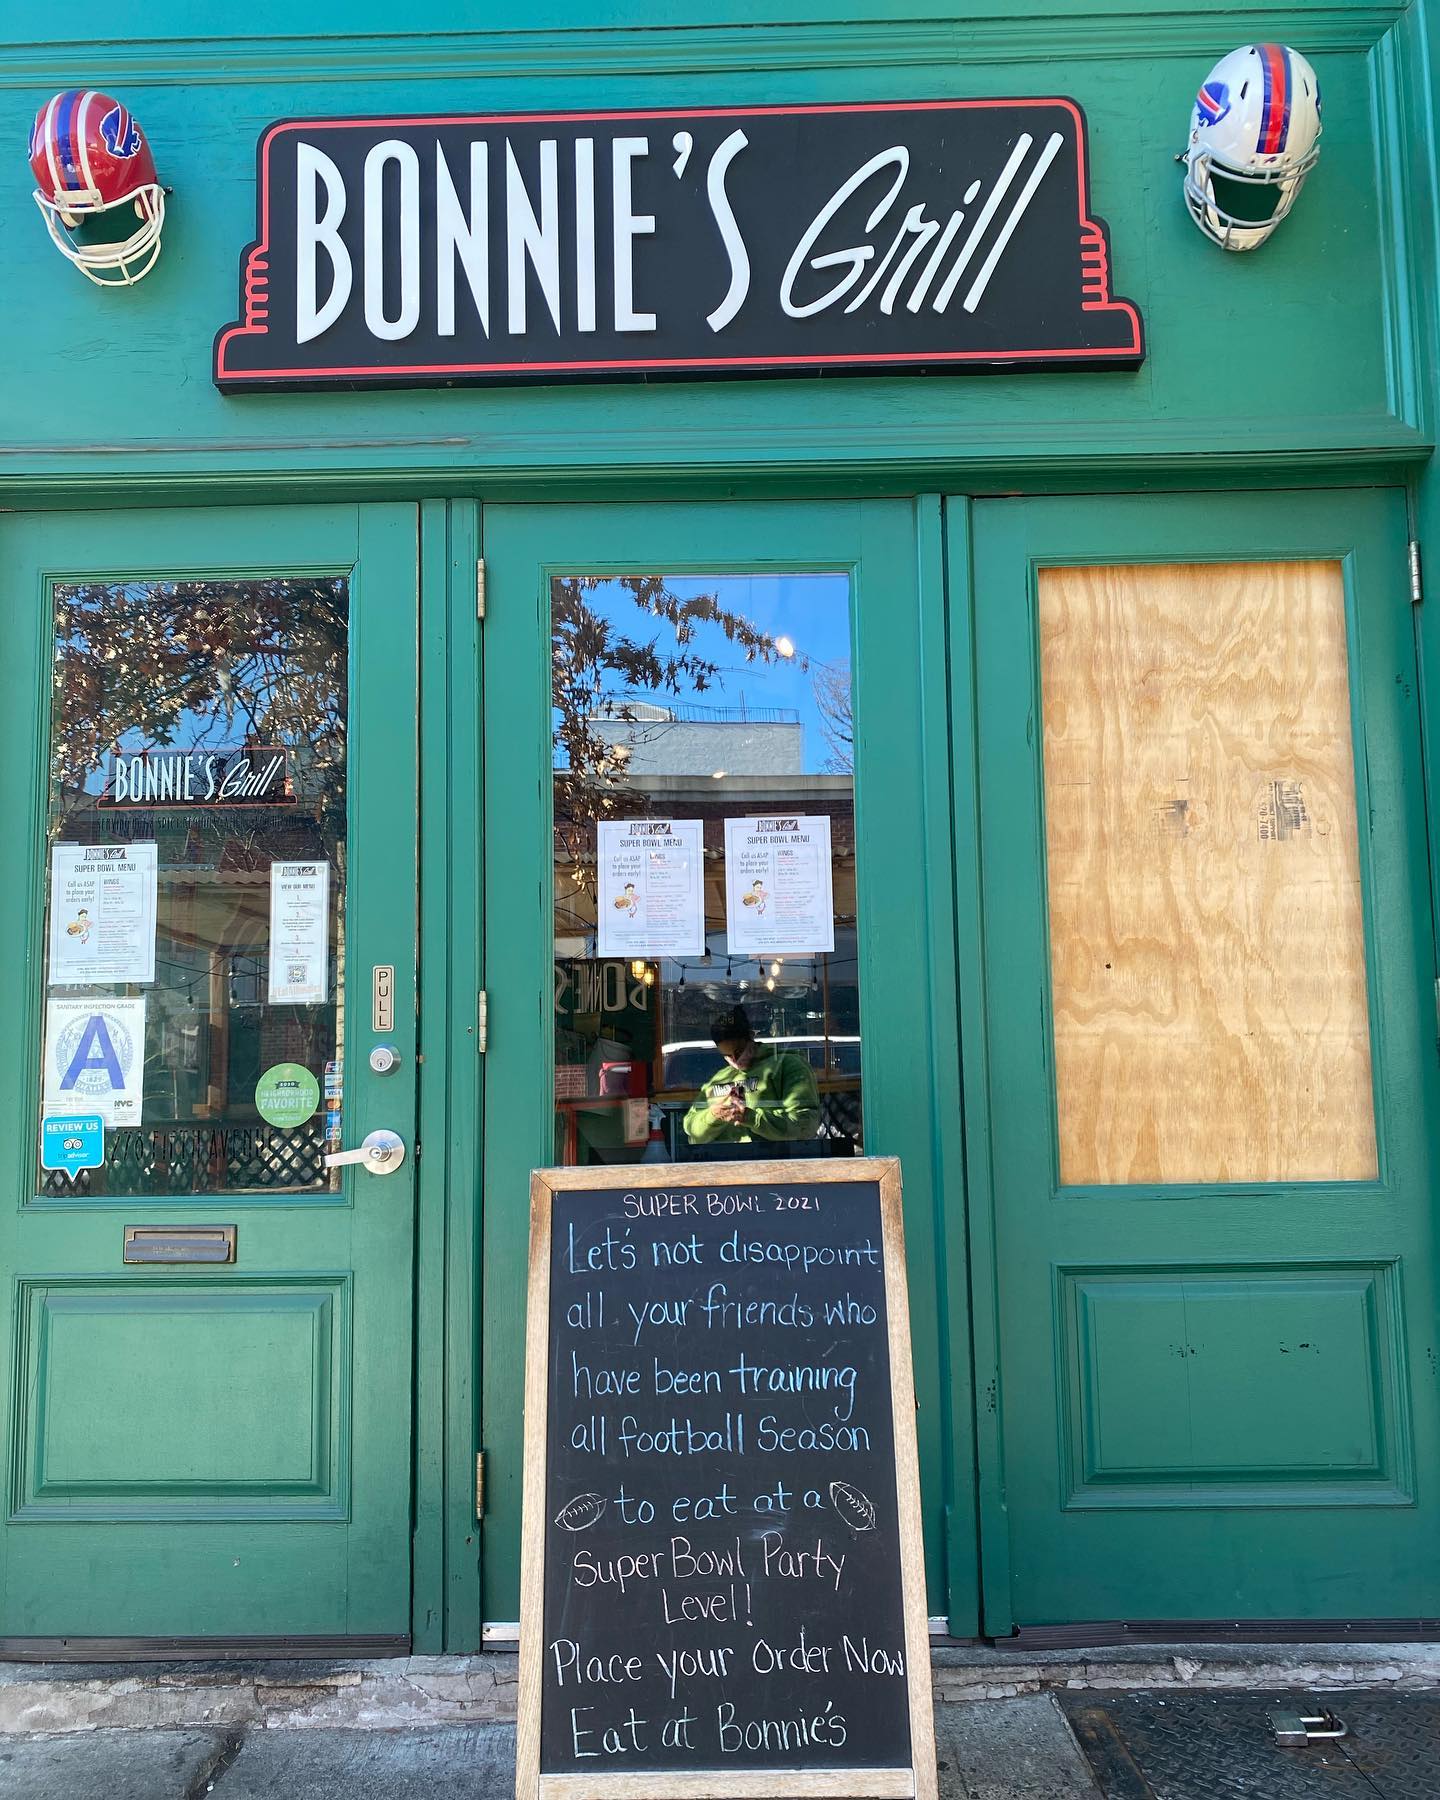 BONNIE'S Grill
BONNIE'S Grill
BONNIE'S Grill
SUPER BOWL MENU
Call us ASAP
to place your
orders early!
WINGS
BONNIE'S Grill
VIEW OUR MENU
1.
2.
3.
4.
SANITARY INSPECTION GRADE
A
NYC
REVIEW US
tripadvisor
2020
NEIGHBORHOOD
FAVORITE
VISA
278 FIFTH AVENUE
PULL
BONNIE'S Grill
SUPER BOWL MENU
Call us ASAP
to place your
orders early!
WINGS
BONNIE'S Grill
SUPER BOWL MENU
Call us ASAP
to place your
orders early!
WINGS
SUPER BOWL 2021
Let's not disappoint
all your friends who
have been training
all football Season
to eat at a
Super Bowl Party
Level!
Place your Order Now
Eat at Bonnie's